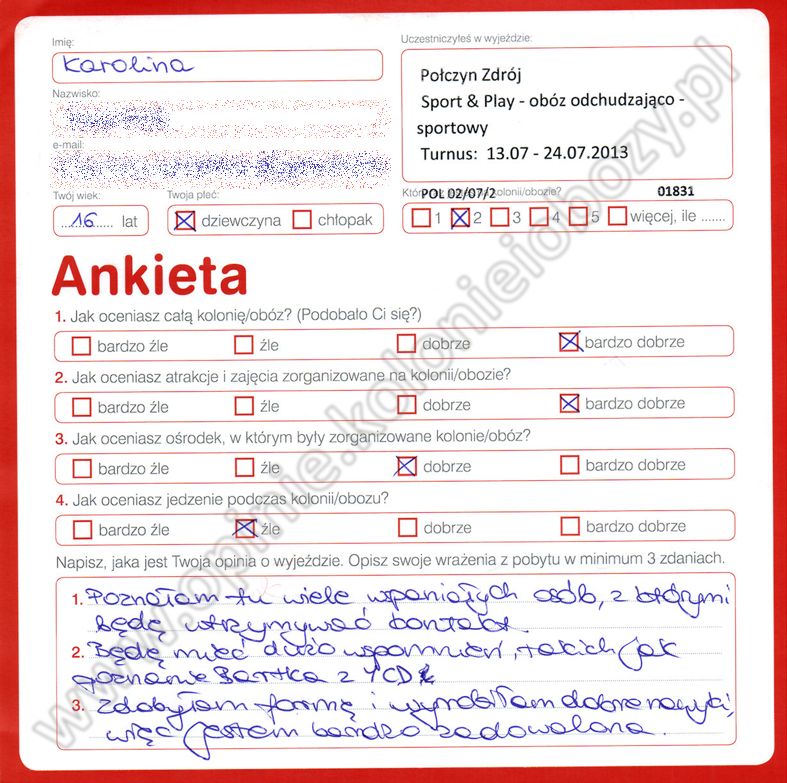 Imię:
Karolina
Nazwisko:
e-mail:
Twój wiek:
16 lat
Twoja płeć:
dziewczyna
chłopak
Uczestniczyłeś w wyjeździe:
Połczyn Zdrój
Sport & Play - obóz odchudzająco -
sportowy
Turnus: 13.07 - 24.07.2013
POL 02/07/2
01831
1 2 3 4 5 więcej, ile .......
Ankieta
1. Jak oceniasz całą kolonię/obóz? (Podobało Ci się?)
bardzo źle źle dobrze bardzo dobrze
2. Jak oceniasz atrakcje i zajęcia zorganizowane na kolonii/obozie?
bardzo źle źle dobrze bardzo dobrze
3. Jak oceniasz ośrodek, w którym były zorganizowane kolonie/obóz?
bardzo źle źle dobrze bardzo dobrze
4. Jak oceniasz jedzenie podczas kolonii/obozu?
bardzo źle źle dobrze bardzo dobrze
Napisz, jaka jest Twoja opinia o wyjeździe. Opisz swoje wrażenia z pobytu w minimum 3 zdaniach.
1. Poznałam tu wiele wspaniałych osób, z którymi
będę utrzymywać kontakt.
2. Będę mieć dużo wspomnień, takich jak
poznanie Bartka z YCD
3. Zdobyłam formę i wyrobiłam dobre nawyki,
więc jestem bardzo zadowolona.
www.opinie.kolonieiobozy.pl